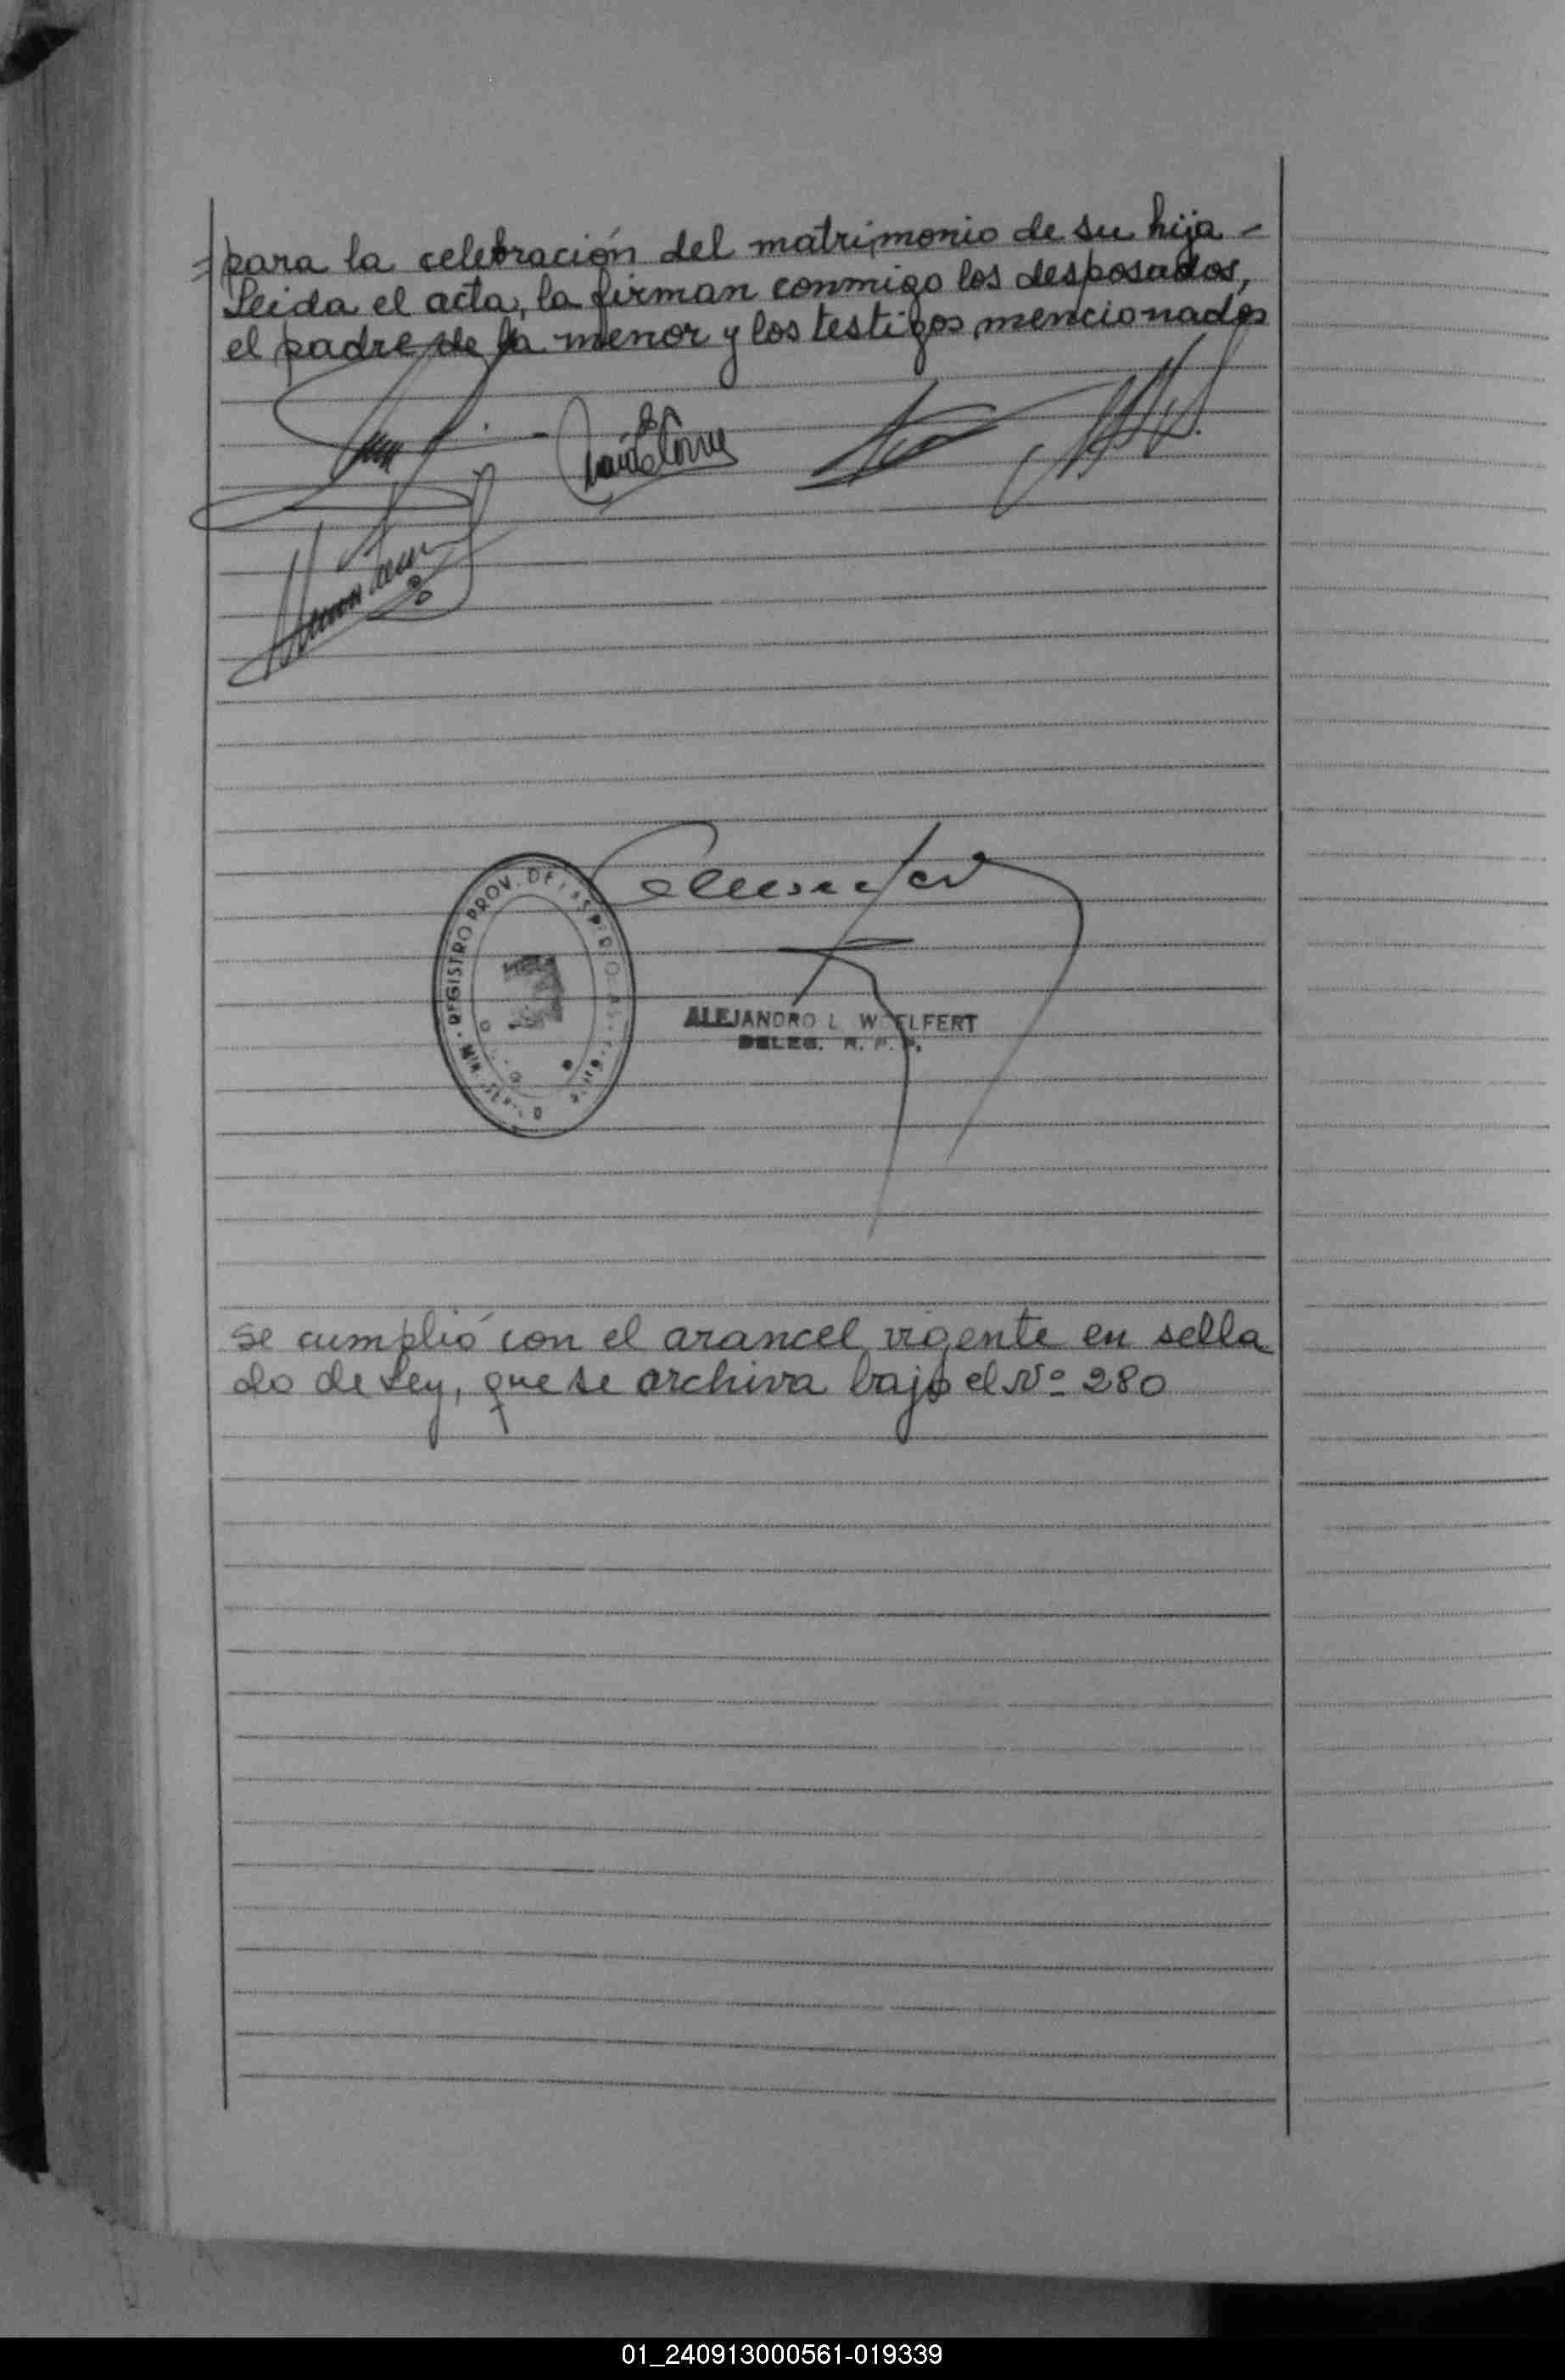 = para la celebración del matrimonio de su hija -
Leida el acta, la firman conmigo los desposados,
el padre de la menor y los testigos mencionados
REGISTRO PROV. DE LAS P
ALEJANDRO L. WOELFERT
DELEG. R. P. P.
se cumplió con el arancel vigente en sella
do de Ley, que se archiva bajo el Nº 280
01_240913000561-019339